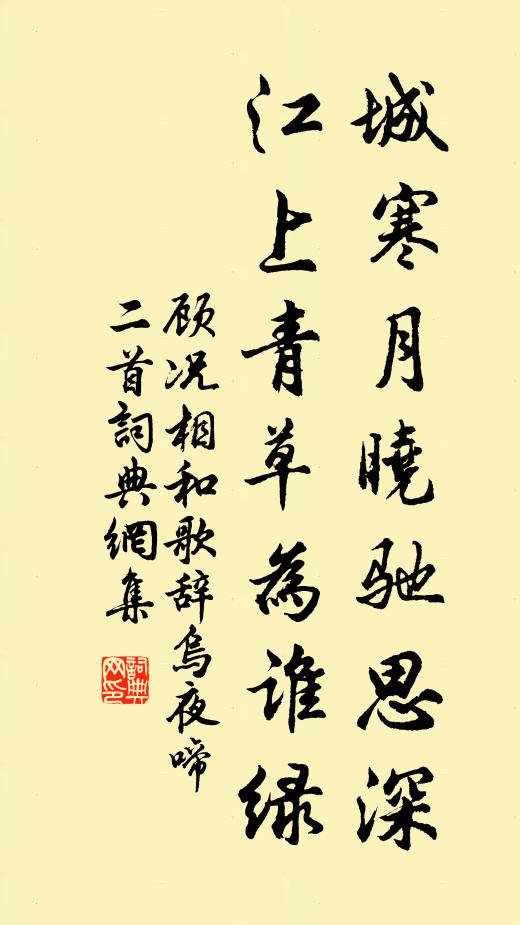 城寒月曉馳思深
江上青草為誰緑
顾况相和歌辞烏夜啼
二首詞典網集
詞典網印